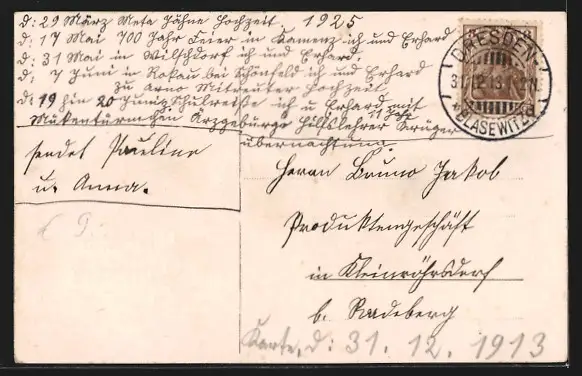 d: 29 März Meta Jähne Hochzeit 1925
d: 17 Mai 700 Jahr Feier in Kamenz ich und Erhard
d: 31 Mai in Wilschdorf ich und Erhard.
d: 7 Juni in Rokau bei Schönfeld ich und Erhard
zu Arno Mitreuter Hochzeit
d: 19 hin 20 Juni Schulreise ich u Erhard mit
11 Jahr
Mükentürmchen Arzgebürge Hilfslehrer Krüger
übernachtung.
DRESDEN-
31.12.13
* BLASEWITZ
sendet Pauline
u. Anna.
Herrn Bruno Jakob
Produktengeschäft
in Kleinröhrsdorf
b. Radeberg
€ 9.-
Karte, d: 31. 12. 1913